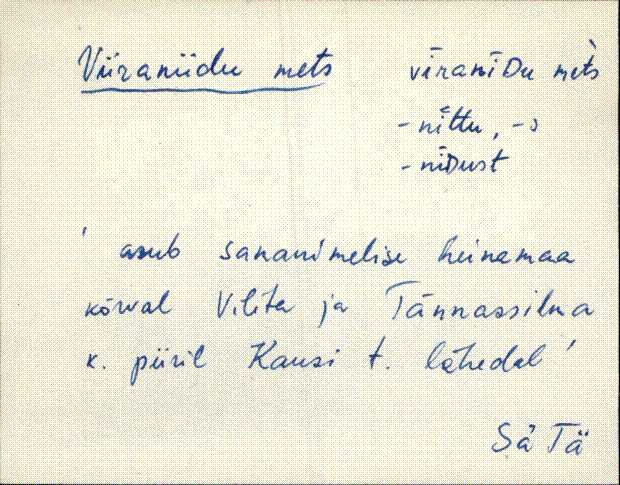 Viiraniidu mets vīranīDu mèts
- nìttu, -s
- nīDust
' asub samanimelise heinamaa
kõrval Vilita ja Tännassilma
k. piiril Kansi t. lähedal '
Sã Tä